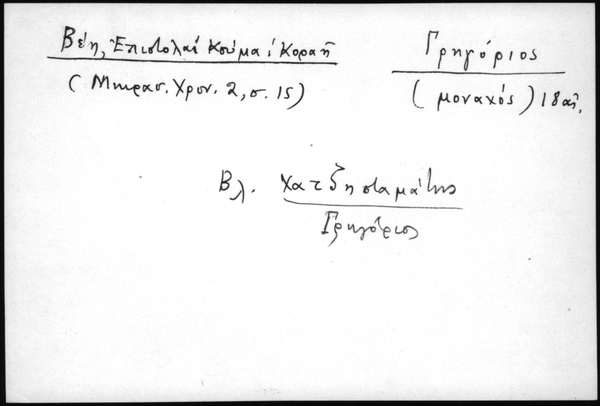 Βέη, Ἐπιστολαί Κούμα: Κοραῆ
(Μικρασ. Χρον. 2, σ. 15)
Γρηγόριος
(μοναχός) 18 αἰ.
Βλ. Χατζησταμάτης
Γρηγόριος